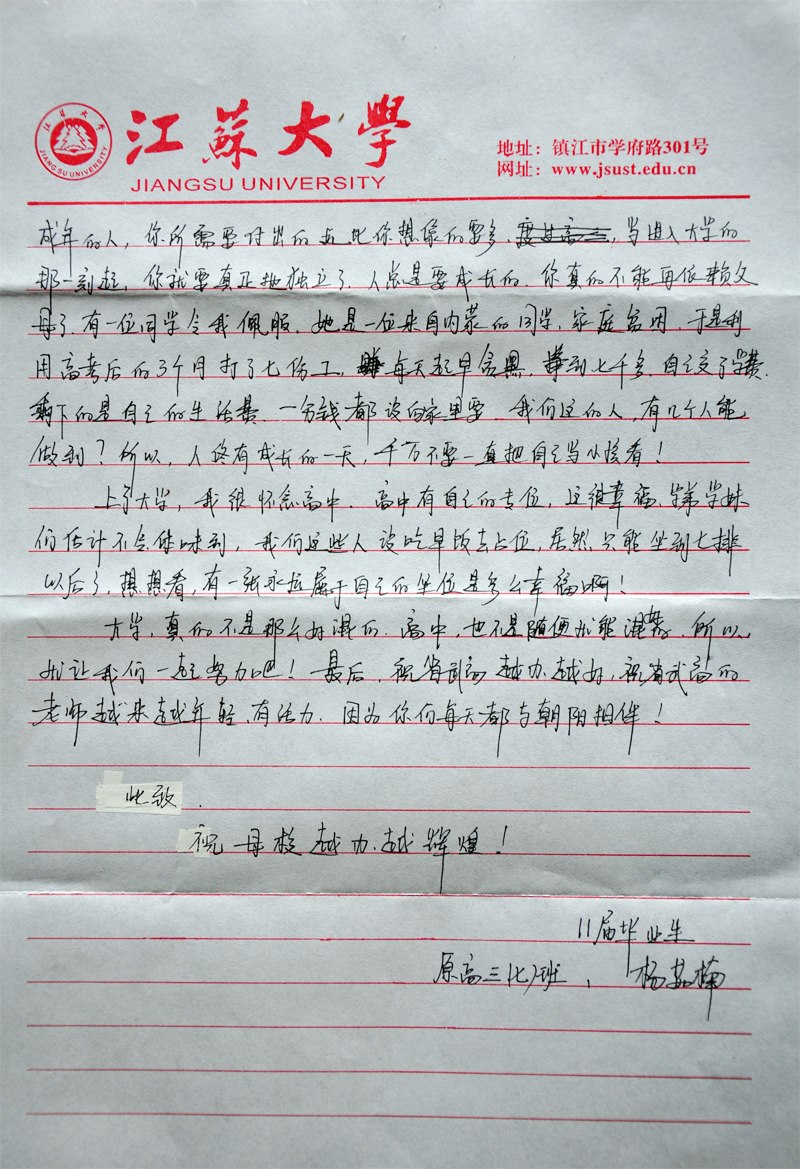 江苏大学
JIANGSU UNIVERSITY
江苏大学
JIANGSU UNIVERSITY
地址：镇江市学府路301号
网址：www.jsust.edu.cn
成年的人，你所需要付出的远比你想像的要多，当进入大学的
那一刻起，你就要真正地独立了，人总是要成长的，你真的不能再依赖父
母了，有一位同学令我佩服，她是一位来自内蒙的同学，家庭贫困，于是利
用高考后的3个月打了七份工，每天起早贪黑，挣到七千多，自己交了学费，
剩下的是自己的生活费，一分钱都没向家里要，我们这的人，有几个人能
做到？所以，人终有成长的一天，千万不要一直把自己当小孩看！
上了大学，我很怀念高中，高中有自己的专位，这很幸福，学弟学妹
们估计不会体味到，我们这些人没吃早饭去占位，居然只能坐到七排
以后了，想想看，有一张永远属于自己的坐位是多么幸福啊！
大学，真的不是那么好混的，高中，也不是随便就能混的，所以，
就让我们一起努力吧！最后，祝省武高越办越好，祝省武高的
老师越来越年轻，有活力，因为你们每天都与朝阳相伴！
此致
祝母校越办越辉煌！
11届毕业生
原高三(七)班，杨楠